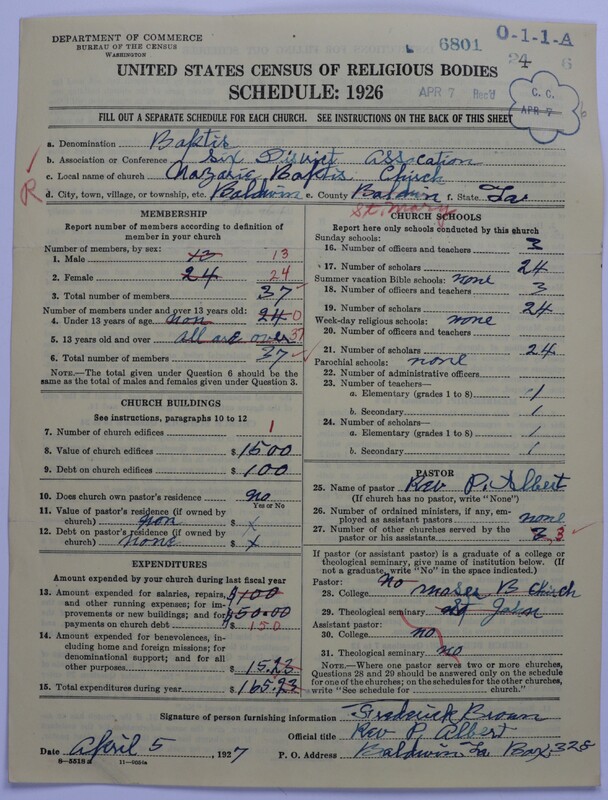 DEPARTMENT OF COMMERCE
BUREAU OF THE CENSUS
WASHINGTON
6801
O-1-1-A
24 6
APR 7 Rec'd
C. C.
APR 7
UNITED STATES CENSUS OF RELIGIOUS BODIES
SCHEDULE: 1926
FILL OUT A SEPARATE SCHEDULE FOR EACH CHURCH. SEE INSTRUCTIONS ON THE BACK OF THIS SHEET
a. Denomination Baptis
b. Association or Conference Six District Assocation
c. Local name of church Nazarie Baptis Church
R
d. City, town, village, or township, etc. Baldwin e. County Baldwin f. State La
St. Mary
MEMBERSHIP
Report number of members according to definition of
member in your church
Number of members, by sex:
1. Male 13 13
2. Female 24 24
3. Total number of members 37
Number of members under and over 13 years old:
4. Under 13 years of age non 24 0
5. 13 years old and over all are over 37
6. Total number of members 37
NOTE.—The total given under Question 6 should be the
same as the total of males and females given under Question 3.
CHURCH BUILDINGS
See instructions, paragraphs 10 to 12
7. Number of church edifices 1
8. Value of church edifices $1500
9. Debt on church edifices $100
10. Does church own pastor's residence no
Yes or No
11. Value of pastor's residence (if owned by
church) non $ x
12. Debt on pastor's residence (if owned by
church) none $ x
EXPENDITURES
Amount expended by your church during last fiscal year
13. Amount expended for salaries, repairs,
and other running expenses; for im-
provements or new buildings; and for
payments on church debt $100
$50.00
150
14. Amount expended for benevolences, in-
cluding home and foreign missions; for
denominational support; and for all
other purposes $15.23
15. Total expenditures during year $165.23
CHURCH SCHOOLS
Report here only schools conducted by this church
Sunday schools:
16. Number of officers and teachers 3
17. Number of scholars 24
Summer vacation Bible schools: none
18. Number of officers and teachers 3
19. Number of scholars 24
Week-day religious schools: none
20. Number of officers and teachers
21. Number of scholars 24
Parochial schools: none
22. Number of administrative officers
23. Number of teachers—
a. Elementary (grades 1 to 8) 1
b. Secondary 1
24. Number of scholars—
a. Elementary (grades 1 to 8) 1
b. Secondary 1
PASTOR
25. Name of pastor Rev P. Albert
(If church has no pastor, write "None")
26. Number of ordained ministers, if any, em-
ployed as assistant pastors none
27. Number of other churches served by the
pastor or his assistants 3 3
If pastor (or assistant pastor) is a graduate of a college or
theological seminary, give name of institution below. (If
not a graduate, write "No" in the space indicated.)
Pastor: No
28. College Moses B Church
29. Theological seminary St John
Assistant pastor:
30. College no
31. Theological seminary no
NOTE.—Where one pastor serves two or more churches,
Questions 28 and 29 should be answered only on the schedule
for one of the churches; on the schedules for the other churches,
write "See schedule for church."
Signature of person furnishing information Frederick Brown
Official title Rev P. Albert
Date April 5, 1927 P. O. Address Baldwin La Box, 328
8—5518 a 11—9024a